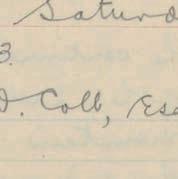 Saturd
3.
D. Colb, Esq